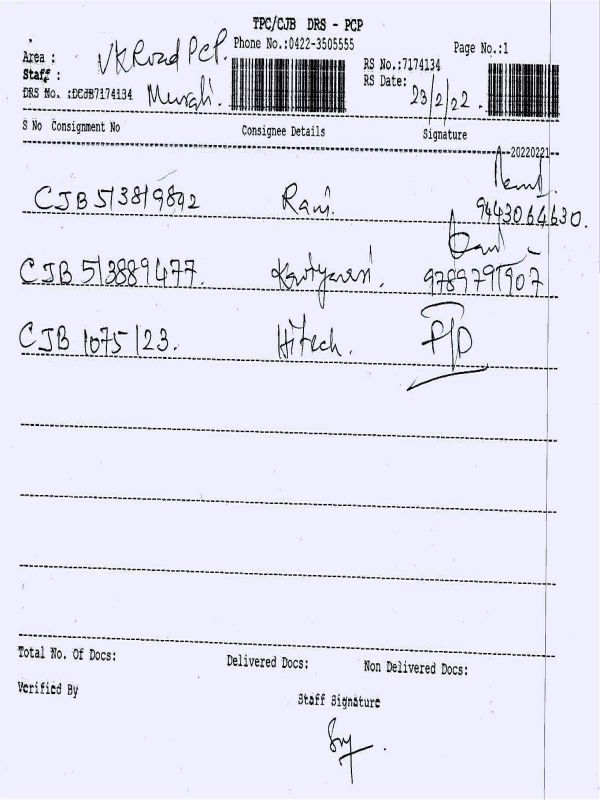 TPC/CJB DRS - PCP
Phone No.:0422-3505555 Page No.:1
Area : VK Road PCP.
RS No.:7174134
Staff :
RS Date: 23/2/22.
DRS No. :DCJB7174134 Murali.
S No Consignment No Consignee Details Signature
20220221
CJB 513819892 Rani. 9443064630.
CJB 513889477. 9789791907
CJB 1075123. Hitech.
Total No. Of Docs: Delivered Docs: Non Delivered Docs:
Verified By Staff Signature